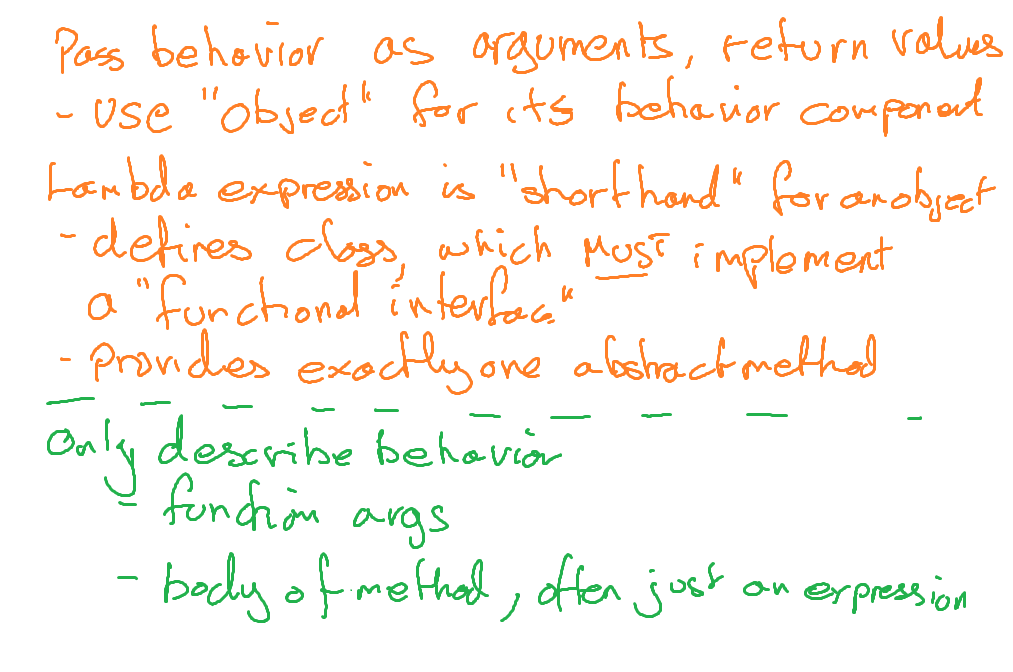 Pass behavior as arguments, return values
- use "object" for its behavior component
Lambda expression is "shorthand" for an object
- defines class, which MUST implement
a "functional interface"
- provides exactly one abstract method
Only describe behavior
- function args
- body of method, often just an expression